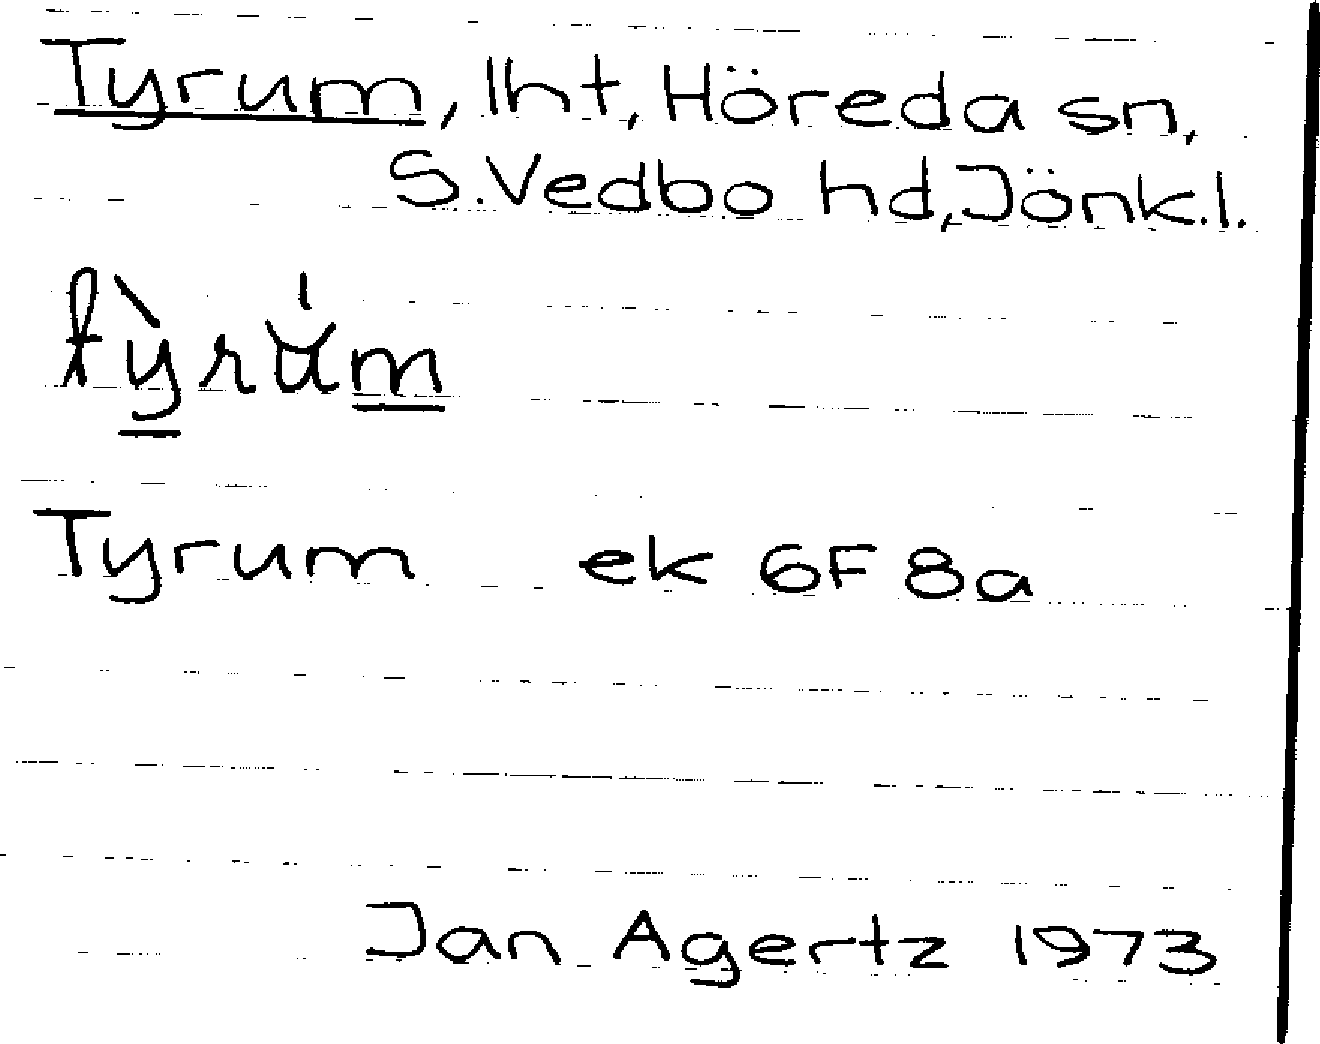 Tyrum, lht, Höreda sn,
S. Vedbo hd, Jönk.l.
tỳrúm
Tyrum ek 6F 8a
Jan Agertz 1973